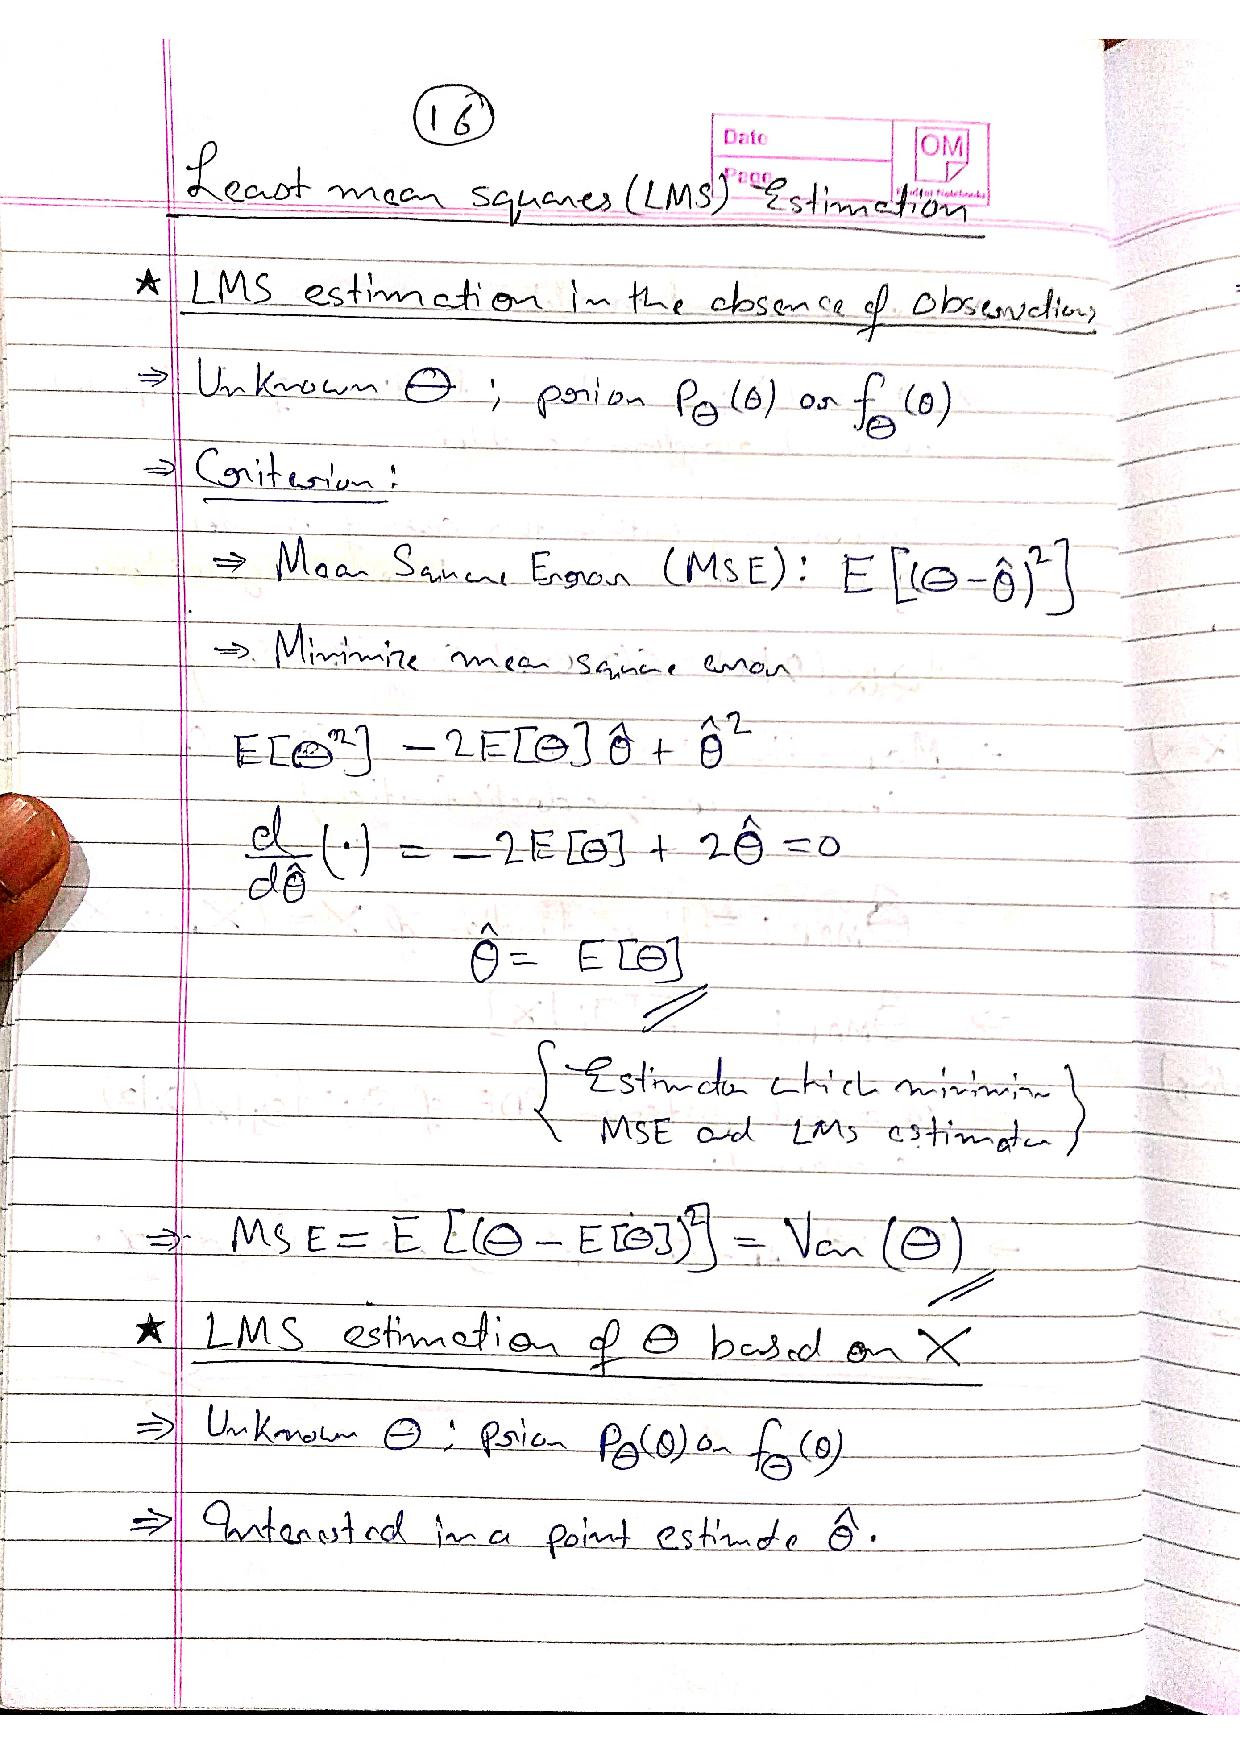 16
Date
OM
Page
Least mean squares (LMS) Estimation
★ LMS estimation in the absence of observations
⇒ Unknown Θ ; prior P_Θ(θ) or f_Θ(θ)
⇒ Criterion :
⇒ Mean Square Error (MSE) : E[(Θ-θ̂)²]
⇒ Minimize mean square error
E[Θ²] - 2E[Θ]θ̂ + θ̂²
d/dθ̂ (·) = -2E[Θ] + 2θ̂ = 0
θ̂ = E[Θ]
{ Estimator which minimize
MSE and LMS estimator }
⇒ MSE = E[(Θ - E[Θ])²] = Var(Θ)
★ LMS estimation of Θ based on X
⇒ Unknown Θ ; prior P_Θ(θ) or f_Θ(θ)
⇒ Interested in a point estimate θ̂.